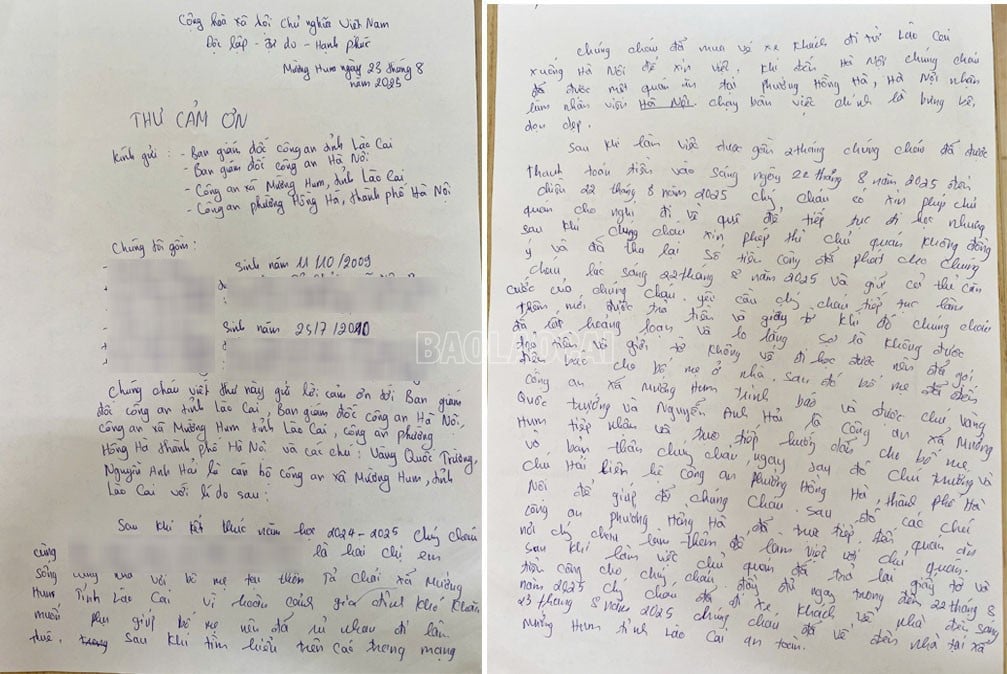 Cộng hoà xã hội Chủ nghĩa Việt Nam
Độc lập - Tự do - Hạnh phúc
Mường Hum ngày 23 tháng 8
năm 2025
THƯ CẢM ƠN
Kính gửi : - Ban giám đốc công an tỉnh Lào Cai
- Ban giám đốc công an Hà Nội
- Công an xã Mường Hum, tỉnh Lào Cai
- Công an phường Hồng Hà, thành phố Hà Nội
Chúng tôi gồm :
Sinh năm 11/10/2009
Sinh năm 25/7/2010
BAOLAOCAI
Chúng cháu viết thư này gửi lời cảm ơn tới Ban giám
đốc công an tỉnh Lào Cai, Ban giám đốc công an Hà Nội,
công an xã Mường Hum tỉnh Lào Cai, công an phường
Hồng Hà thành phố Hà Nội và các chú : Vàng Quốc Trường,
Nguyễn Anh Hải là cán bộ công an xã Mường Hum, tỉnh
Lào Cai với lí do sau :
Sau khi kết thúc năm học 2024 - 2025 chúng cháu
cùng là hai chị em
sống cùng nhà với bố mẹ tại thôn Tả Chải xã Mường
Hum Tỉnh Lào Cai vì hoàn cảnh gia đình khó khăn
muốn phụ giúp bố mẹ nên đã rủ nhau đi làm
thuê. Sau khi tìm hiểu trên các trang mạng
chúng cháu đã mua vé xe khách đi từ Lào Cai
xuống Hà Nội để xin việc. Khi đến Hà Nội chúng cháu
đã được một quán ăn tại phường Hồng Hà, Hà Nội nhận
làm nhân viên Hà Nội chạy bàn việc chính là bưng bê,
dọn dẹp.
Sau khi làm việc được gần 2 tháng chúng cháu đã được
thanh toán tiền vào sáng ngày 22 tháng 8 năm 2025 đến
chiều 22 tháng 8 năm 2025 chúng cháu có xin phép chủ
quán cho nghỉ đi về quê để tiếp tục đi học nhưng
sau khi chúng cháu xin phép thì chủ quán không đồng
ý và đã thu lại số tiền công đã phát cho chúng
cháu lúc sáng 22 tháng 8 năm 2025 và giữ cả thẻ căn
cước của chúng cháu. yêu cầu chúng cháu tiếp tục làm
thêm mới được trả tiền và giấy tờ khi đó chúng cháu
đã rất hoảng loạn và lo lắng sợ là không được
trả tiền và giấy tờ không về đi học được nên đã gọi
điện báo cho bố mẹ ở nhà. Sau đó bố mẹ đã đến
công an xã Mường Hum trình báo và được chú Vàng
Quốc Trường và Nguyễn Anh Hải là công an xã Mường
Hum tiếp nhận và trực tiếp hướng dẫn cho bố mẹ
và bản thân chúng cháu, ngay sau đó chú Trường và
chú Hải liên hệ công an phường Hồng Hà, thành phố Hà
Nội để giúp đỡ chúng cháu. Sau đó các chú
công an phường Hồng Hà đã trực tiếp đến quán ăn
nơi chúng cháu làm thêm để làm việc với chủ quán.
Sau khi làm việc chủ quán đã trả lại giấy tờ và
tiền công cho chúng cháu đầy đủ ngay trong đêm 22 tháng 8
năm 2025 chúng cháu đã đi xe khách về nhà đến sáng
23 tháng 8 năm 2025 chúng cháu đã về đến nhà tại xã
Mường Hum tỉnh Lào Cai an toàn.